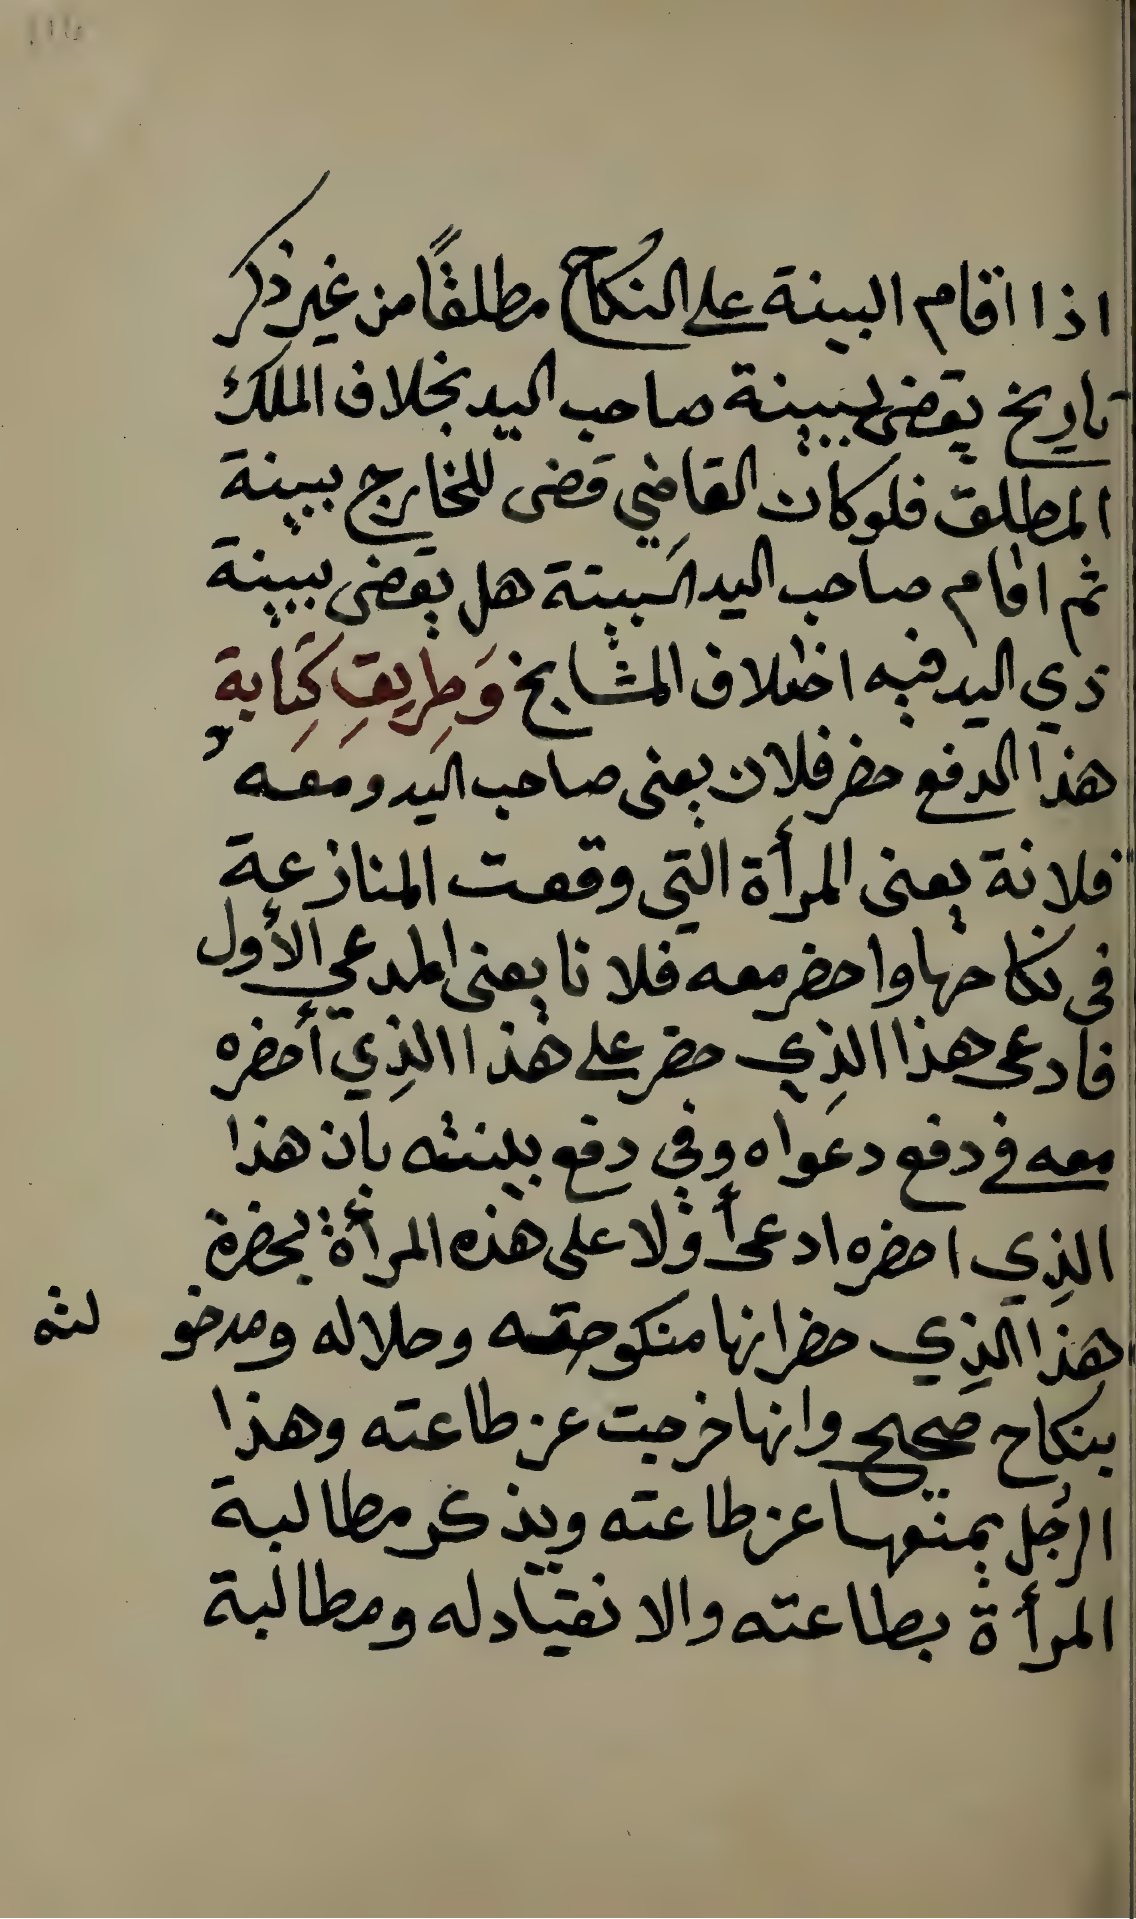 اذا اقام البينة على النكاح مطلقًا من غير ذكر
تاريخ يقضى ببينة صاحب اليد بخلاف الملك
المطلق فلو كان القاضي قضى للخارج ببينة
ثم اقام صاحب اليد البينة هل يقضى ببينة
ذي اليد فيه اختلاف المشايخ وَطِريقِ كِتَابة
هذا الدفع حضر فلان يعنى صاحب اليد ومعه
فلانة يعنى المرأة التي وقعت المنازعة
في نكاحها واحضر معه فلانا يعنى المدعي الأول
فادعى هذا الذِي حضر على هذا الذِي أحضره
معه في دفع دعواه وفي دفع بينته بان هذا
الذِي احضره ادعى أولا على هذه المرأة بحضرة
هذا الذِي حضر انها منكوحته وحلاله ومدخولته
بنكاح صحيح وانها خرجت عن طاعته وهذا
الرجُل يمنعها عن طاعته ويذكر مطالبة
المرأة بطاعته والانقياد له ومطالبة